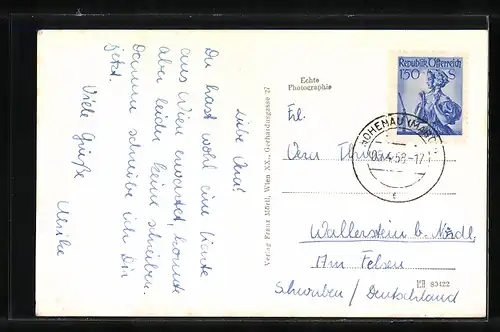 Liebe Vera!
Du hast wohl eine Karte
aus Wien erwartet, konnte
aber leider keine schreiben.
Darum schreibe ich Dir
jetzt.
Viele Grüße
Ulrike
Echte
Photographie
Verlag Franz Mörtl, Wien XX., Gerhardusgasse 27
Republik Österreich
1'50 S
HOHENAU
4.58-17
Frl.
Vera
Wallerstein b. Nördl.
Am Felsen
Schwaben / Deutschland
83422